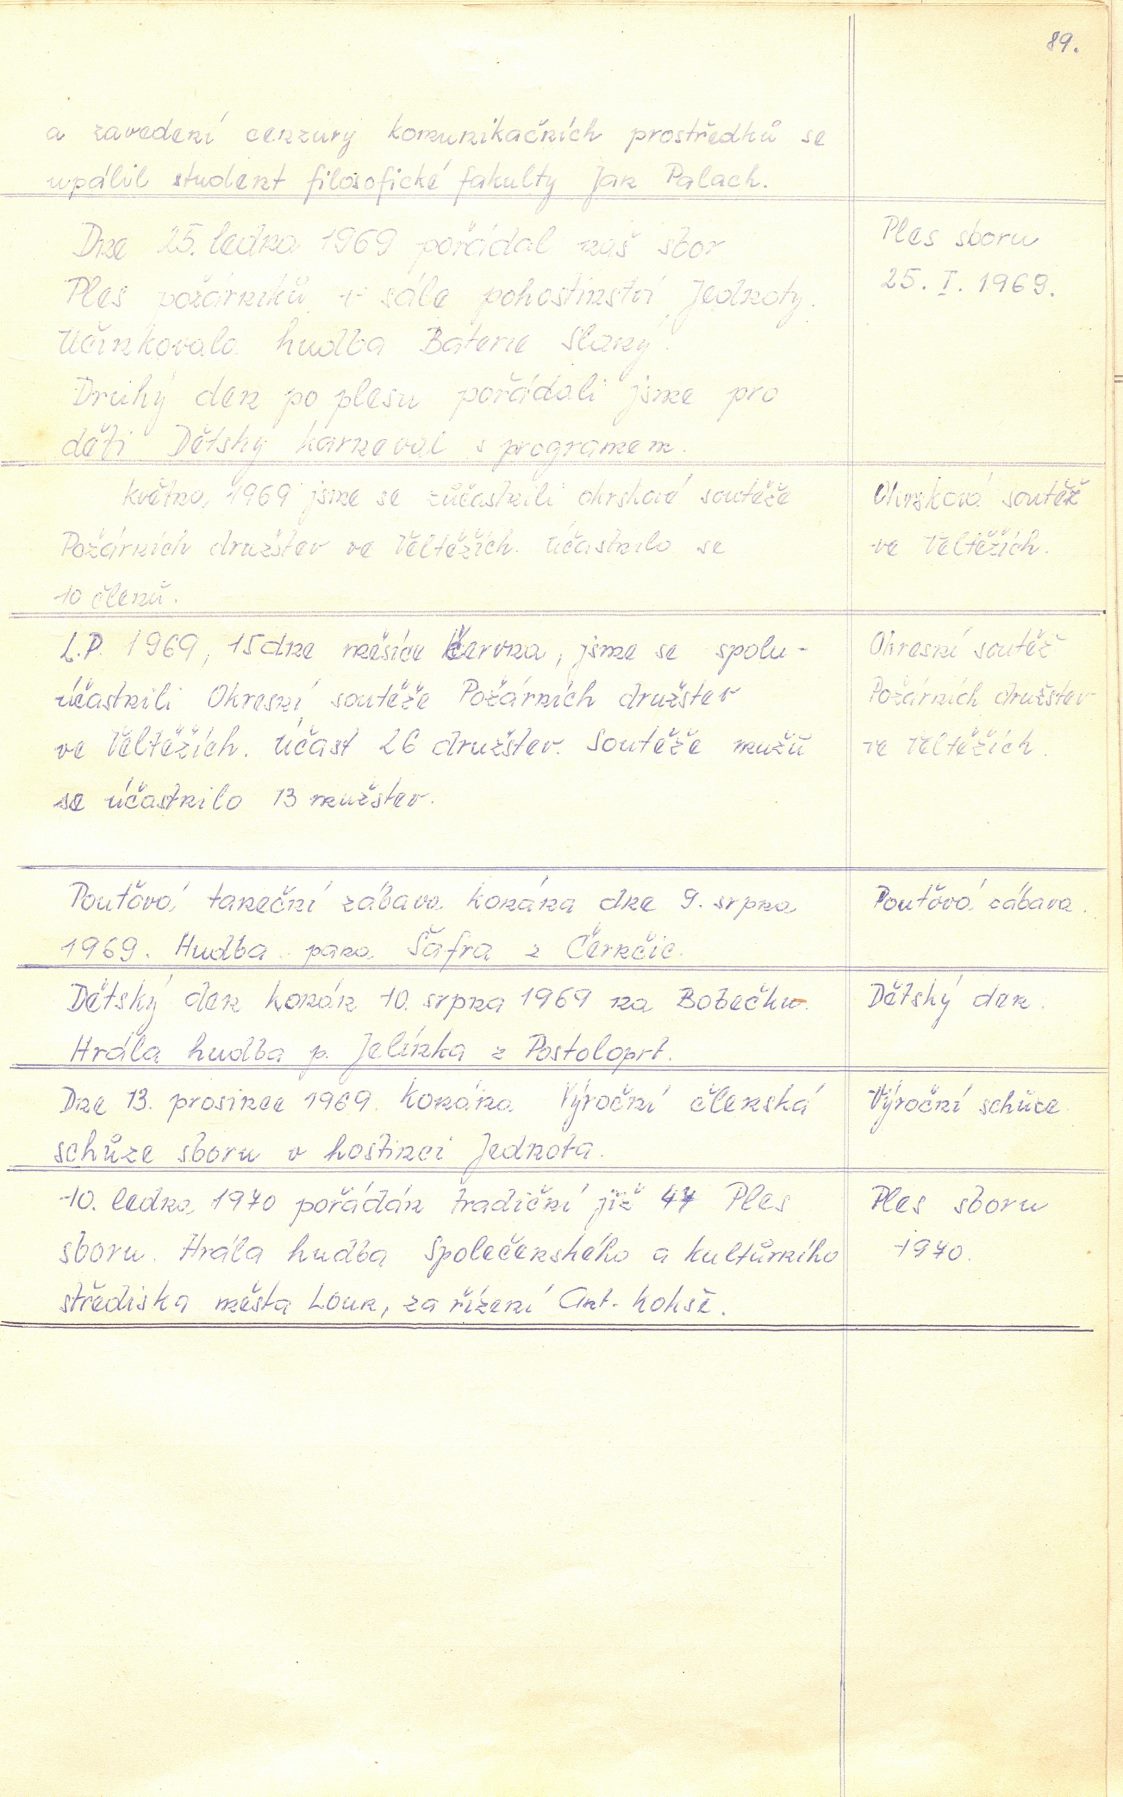 89.
a zavedení cenzury komunikačních prostředků se
upálil student filosofické fakulty Jan Palach.
Dne 25. ledna 1969 pořádal náš sbor
Ples požárníků v sále pohostinství Jednoty.
Účinkovala hudba Baterie Slaný.
Druhý den po plesu pořádali jsme pro
děti Dětský karneval s programem.
Ples sboru
25. I. 1969.
května, 1969 jsme se zúčastnili okrskové soutěže
Požárních družstev ve Veltěžích. Účastnilo se
10 členů.
Okrsková soutěž
ve Veltěžích.
L.P. 1969, 15 dne měsíce Června, jsme se spolu-
účastnili Okresní soutěže Požárních družstev
ve Veltěžích. Účast 26 družstev. Soutěže mužů
se účastnilo 13 mužstev.
Okresní soutěž
Požárních družstev
ve Veltěžích.
Pouťová taneční zábava konána dne 9. srpna
1969. Hudba pana Šafra z Černčic.
Pouťová zábava.
Dětský den konán 10. srpna 1969 na Bobečku.
Hrála hudba p. Jelínka z Postoloprt.
Dětský den.
Dne 13. prosince 1969. konána Výroční členská
schůze sboru v hostinci Jednota.
Výroční schůze
10. ledna, 1970 pořádán tradiční již 47 Ples
sboru. Hrála hudba Společenského a kultůrního
střediska města Loun, za řízení Ant. Kohše.
Ples sboru
1970.